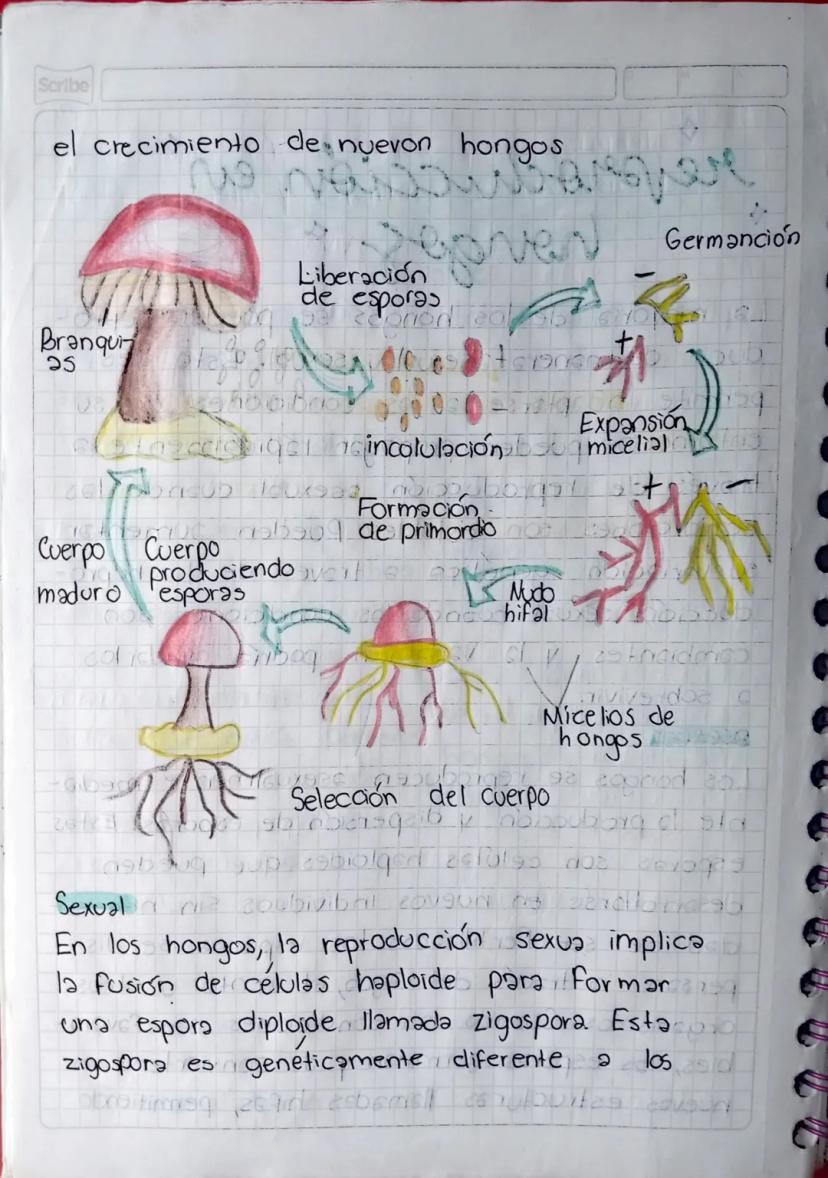 Scribe
el crecimiento de nuevon hongos
Germanción
Liberación
de esporas
-
Branqui-
as
+
+
-
Expansión
micelial
incolulación
+
-
Formación
de primordio
Cuerpo
maduro
Cuerpo
produciendo
esporas
Nudo
hifal
Micelios de
hongos
Selección del cuerpo
Sexual
En los hongos, la reproducción sexua implica
la fusión de células haploide para formar
una espora diploide llamada zigospora. Esta
zigospora es genéticamente diferente a los